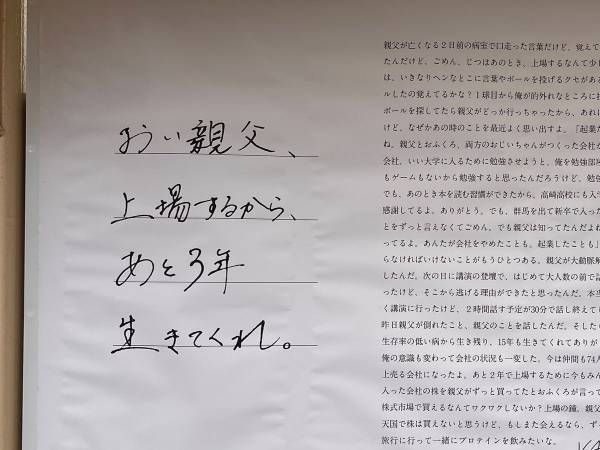 おい親父、
上場するから、
あと3年
生きてくれ。
親父が亡くなる2日前の病室で口走った言葉だけど、覚えて
たんだけど、ごめん、じつはあのとき、上場するなんて少し
は、いきなりヘンなとこに言葉やボールを投げるクセがある
ルしたの覚えてるかな？1球目から俺が的外れなところに投
ボールを探してたら親父がどっか行っちゃったから、あれに
けど、なぜかあの時のことを最近よく思い出すよ。「起業だ
ね。親父とおふくろ、両方のおじいちゃんがつくった会社が
会社。いい大学に入るために勉強させようと、俺を勉強部屋
もゲームもないから勉強すると思ったんだろうけど、勉強
でも、あのとき本を読む習慣ができたから、高崎高校にも入学
感謝してるよ。ありがとう。でも、群馬を出て新卒で入った
とをずっと言えなくてごめん。でも親父は知ってたんだよね
ってるよ。あんたが会社をやめたことも。起業したことも」
らなければいけないことがもうひとつある。親父が大動脈解
したんだ。次の日に講演の登壇で、はじめて大人数の前で話
ったけど、そこから逃げる理由ができたと思ったんだ。本当
く講演に行ったけど、2時間話す予定が30分で話し終えて
昨日親父が倒れたこと、親父のことを話したんだ。そしたら
生存率の低い病から生き残り、15年も生きてくれてありが
俺の意識も変わって会社の状況も一変した。今は仲間も74人
上売る会社になったよ。あと2年で上場するために今もみん
入った会社の株を親父がずっと買ってたとおふくろが言って
株式市場で買えるなんてワクワクしないか？上場の鐘。親父
天国で株は買えないと思うけど、もしまた会えるなら、ず
旅行に行って一緒にプロテインを飲みたいな。